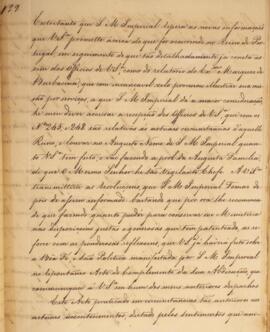 122
Entretanto que S. M. Imperial espera as novas informaçoes
que V. S.ª promette ácerca do que for occorrendo no Reino de Por-
tugal, em seguimento do que tão detalhadamente já consta as-
sim dos Officios de V. S.ª como do relatorio do Ex.mo Marquez de
Barbacena, que com incansavel zelo procurou illustrar a sua
por serviços, a que S. M. Imperial dá a maior consideração,
he meu dever accusar a recepção dos Officios de V. S.ª, que sem o
N.º 247, e 248 são relativos as actuaes circunstancias d'aquelle
Reino, e louvar no Augusto Nome de S. M. Imperial, quanto
V. S.ª tem feito, e vai fazendo a prol da Augusta Familia,
de que o Mesmo Senhor he Vigilante Chefe. A V. S.ª
transmittirei as Resoluçoens que S. M. Imperial Tomar de-
pois de assim informado. Entretanto que por ora lhe recommen-
da que fazendo quanto puder para conservar esse Ministerio
nas disposiçoens justas e generosas que tem patenteado, as re-
force com as ponderosas reflexoens que V. S.ª já havia feito sobre
a Boa Fé, e Sam Politica manifestada por S. M. Imperial
no espontaneo Acto de Complemento da sua Abdicação, que
communiquei a V. S.ª em hum dos meus anteriores despachos.
Este Acto praticado em circunstancias tão anteriores aos
actuaes acontecimentos dictado pelos sentimentos que ani-